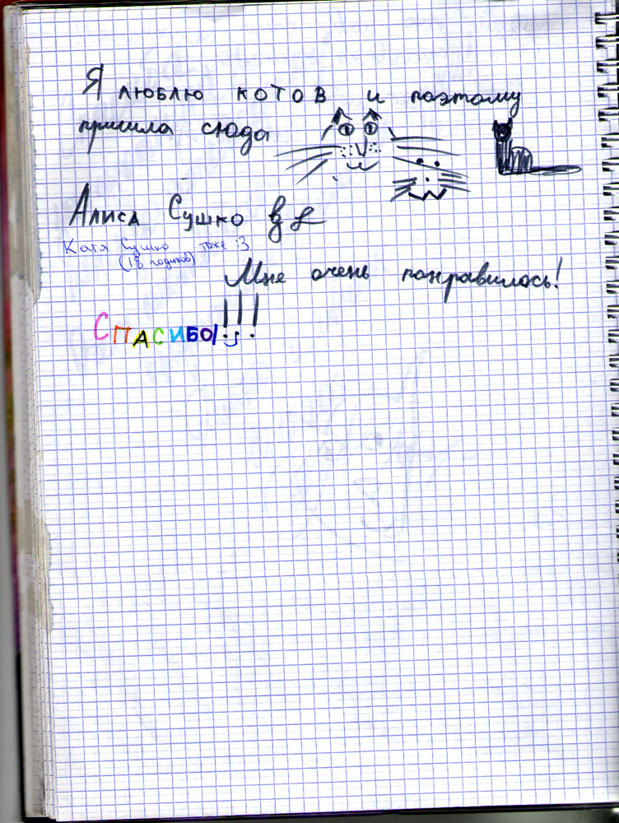 Я люблю котов и поэтому
пришла сюда
Алиса Сушко
Катя Сушко тоже :3
(18 годиков)
Мне очень понравилось!
СПАСИБО!!!!